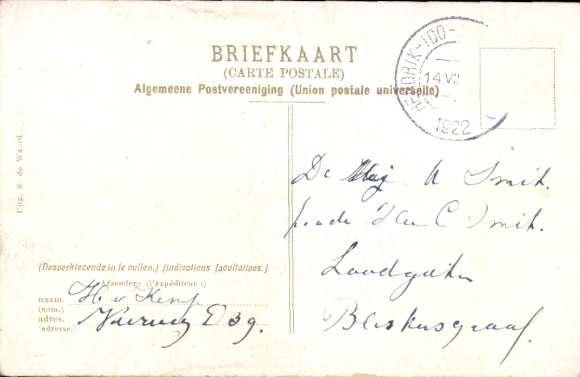 BRIEFKAART
(CARTE POSTALE)
Algemeene Postvereeniging (Union postale universelle)
HENDRIK-IDO-
14.VII
1922
Uitg. S. de Waard.
De Mej A Smit.
p/a de Heer C Smit.
Loodgieter
Bleskensgraaf.
(Desverkiezende in te vullen.) (Indications facultatives.)
Afzender: (l'expéditeur :)
naam. H v Kemp
(nom.)
adres. D 39.
(adresse.)